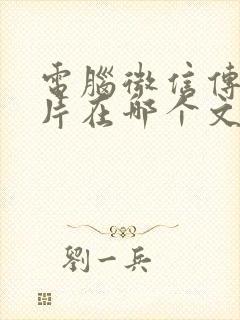 電腦微信傳
片在哪个文
劉一兵